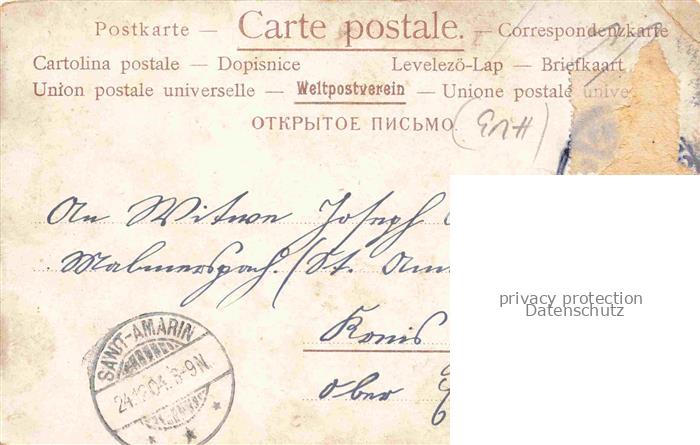 Postkarte — Carte postale. — Correspondenzkarte
Cartolina postale — Dopisnice Levelező-Lap — Briefkaart
Union postale universelle — Weltpostverein — Unione postale unive
ОТКРЫТОЕ ПИСЬМО.
An Witwe Joseph
Malmerspach. (St. Am
Kreis
Ober
SANCT-AMARIN
24.12.04. 8-9N.
privacy protection
Datenschutz